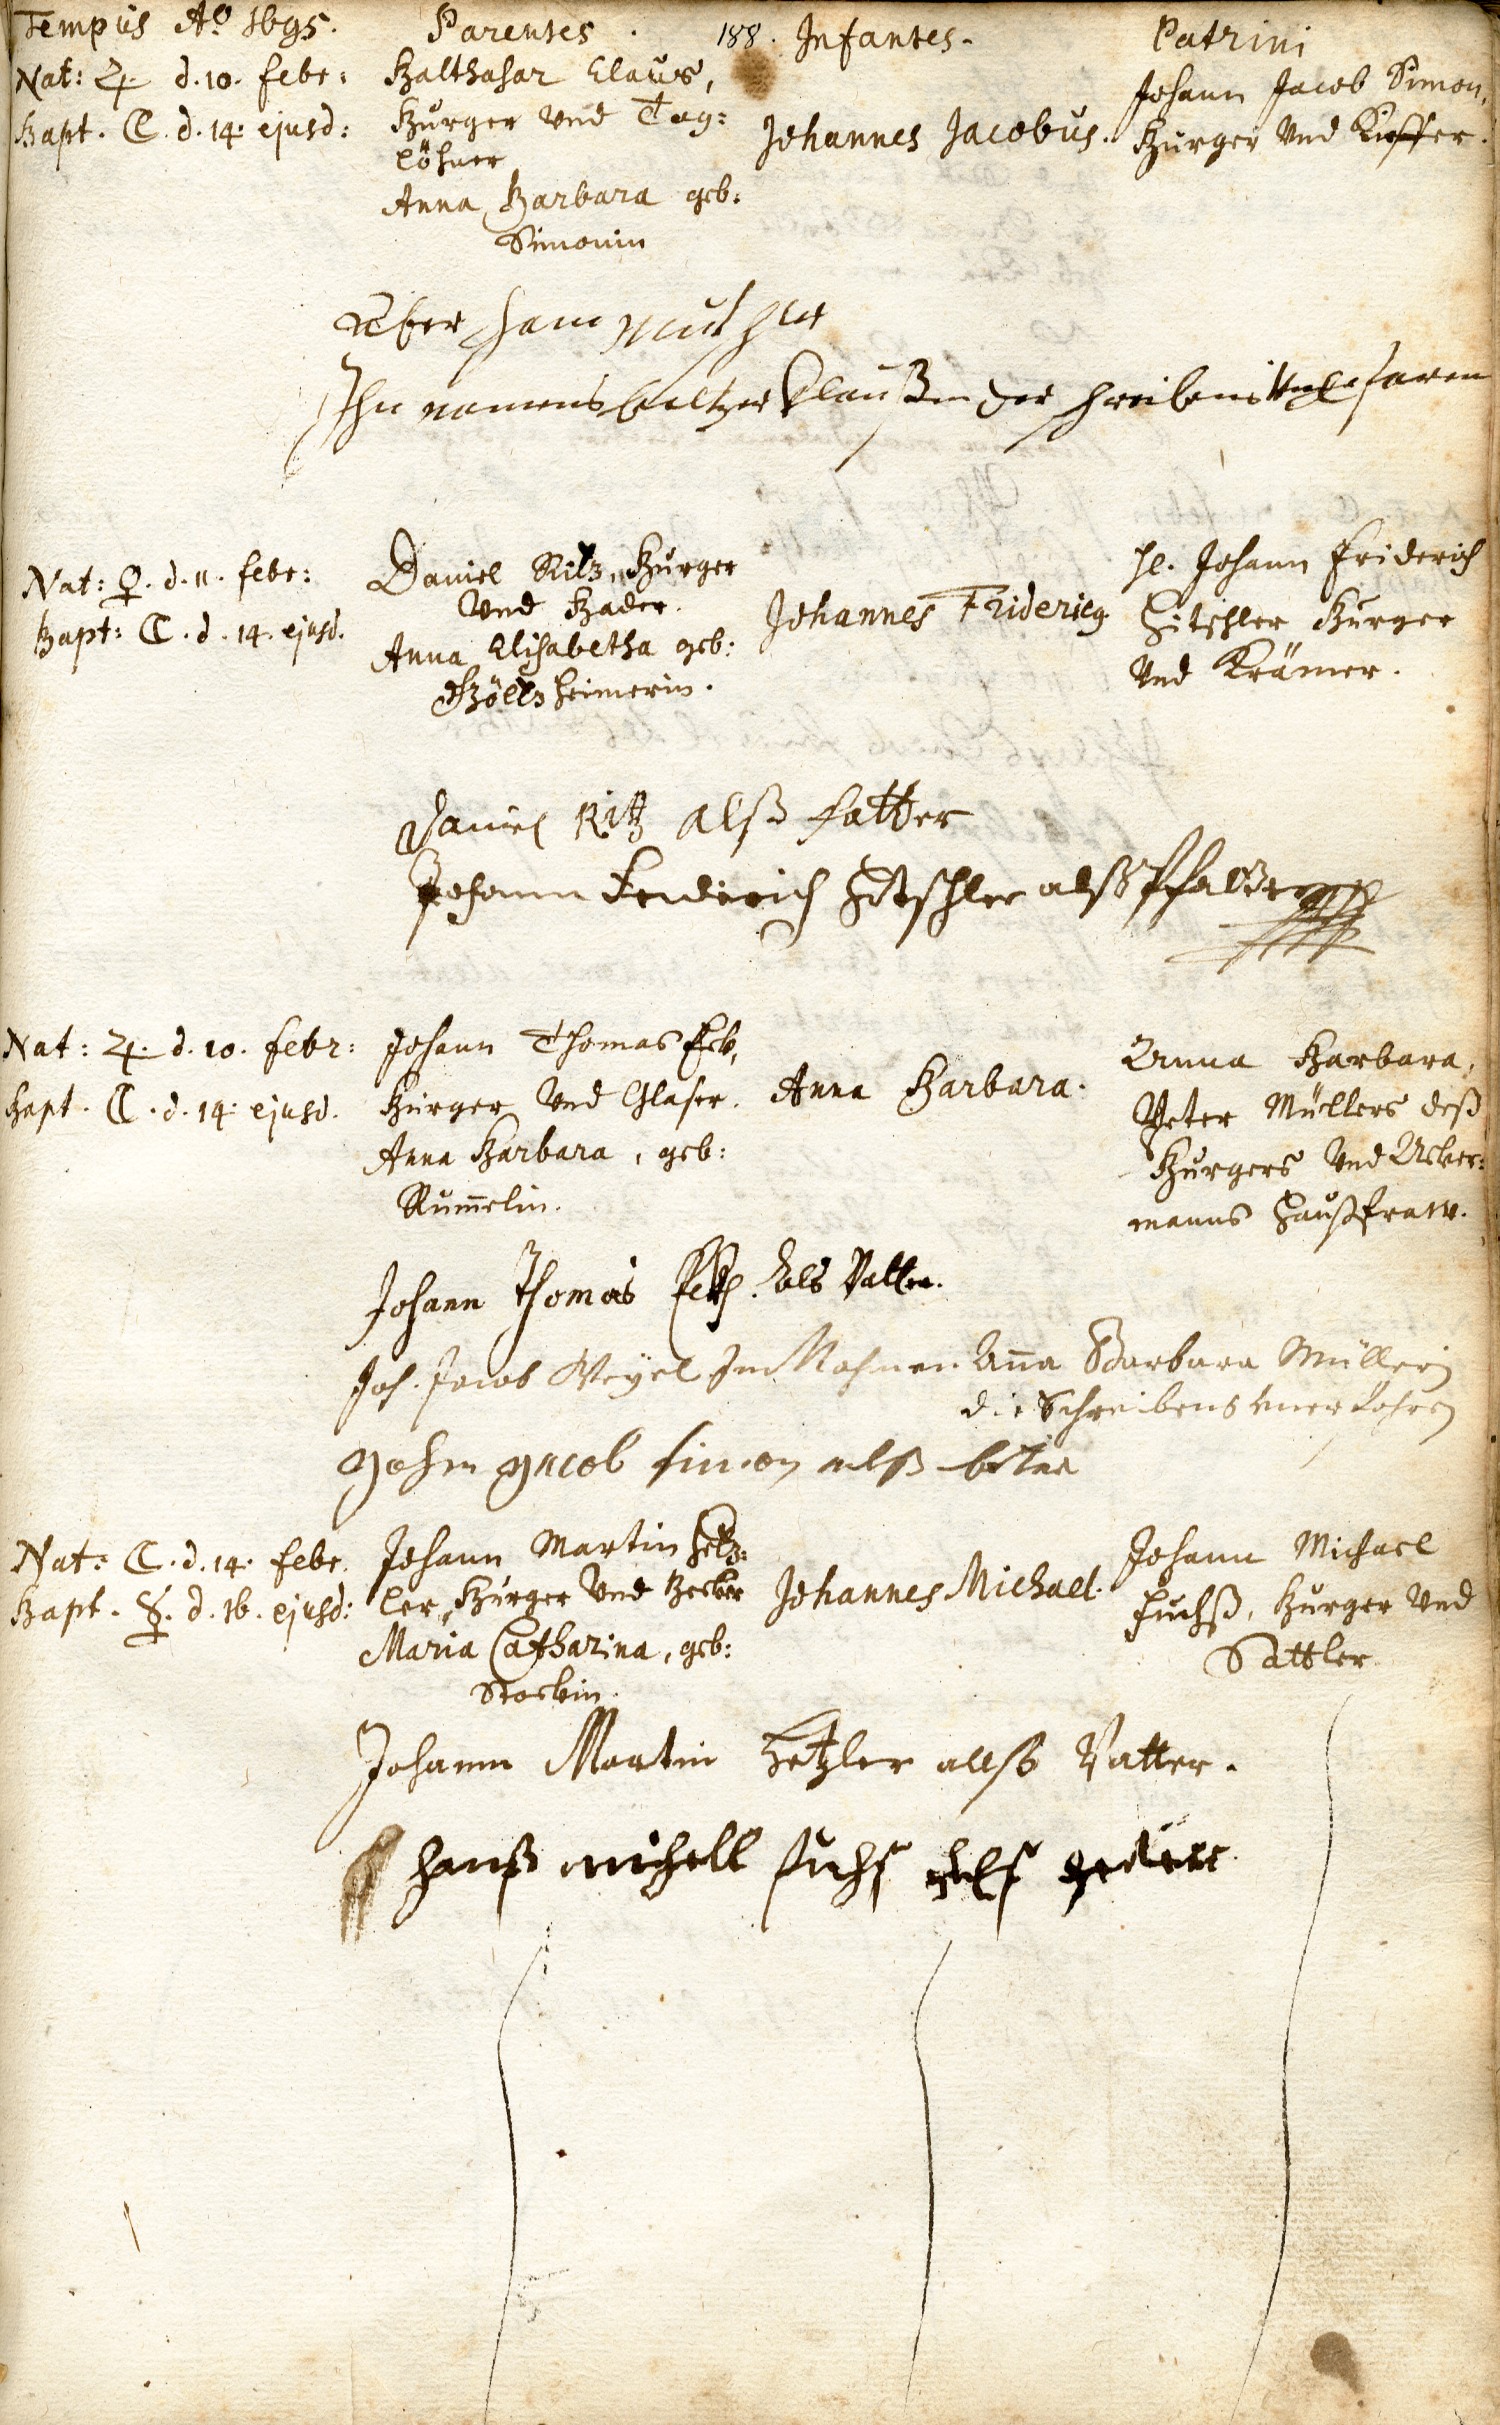 Tempus Aº 1695. Parentes. 188. Infantes. Patrini
Nat: ♃. d. 10. febr:
Bapt. ☾. d. 14. ejusd:
Balthasar Claus,
Burger Und Tag:
löhner
Anna Barbara geb:
Simonin
Johannes Jacobus.
Johann Jacob Simon,
Burger Und Kieffer.
Ihn namens Claußen der
Nat: ♀. d. 11. febr:
Bapt: ☾. d. 14. ejusd.
Daniel Ritz, Burger
Und Bader.
Anna Elisabetha geb:
Johannes Fridericg
Hl. Johann Friderich
Hitschler Burger
Und Krämer.
Daniel Ritz alß fatter
Johann Friderich Hitschler alß Pfatter
Nat: ♃. d. 10. febr:
Bapt. ☾. d. 14. ejusd.
Johann Thomas Eck,
Burger Und Glaser.
Anna Barbara, geb:
Rum̄elin.
Anna Barbara.
Anna Barbara,
Peter Müllers deß
Burgers Und Acker:
manns Haußfraw.
Johann Thomas Als Vatter.
Joh. Jacob Weyel Im Nahmen An̄a Barbara Müllerin
die Schreibens unerfahren
Jacob simon alß
Nat: ☾. d. 14. febr.
Bapt. ☿. d. 16. ejusd:
Johann Martin Hetz:
ler, Burger Und Becker
Maria Catharina, geb:
Stockin.
Johannes Michael.
Johann Michael
Fuchß, Burger Und
Sattler
Johann Martin Hetzler alß Vatter.
Hanß michell fuchs